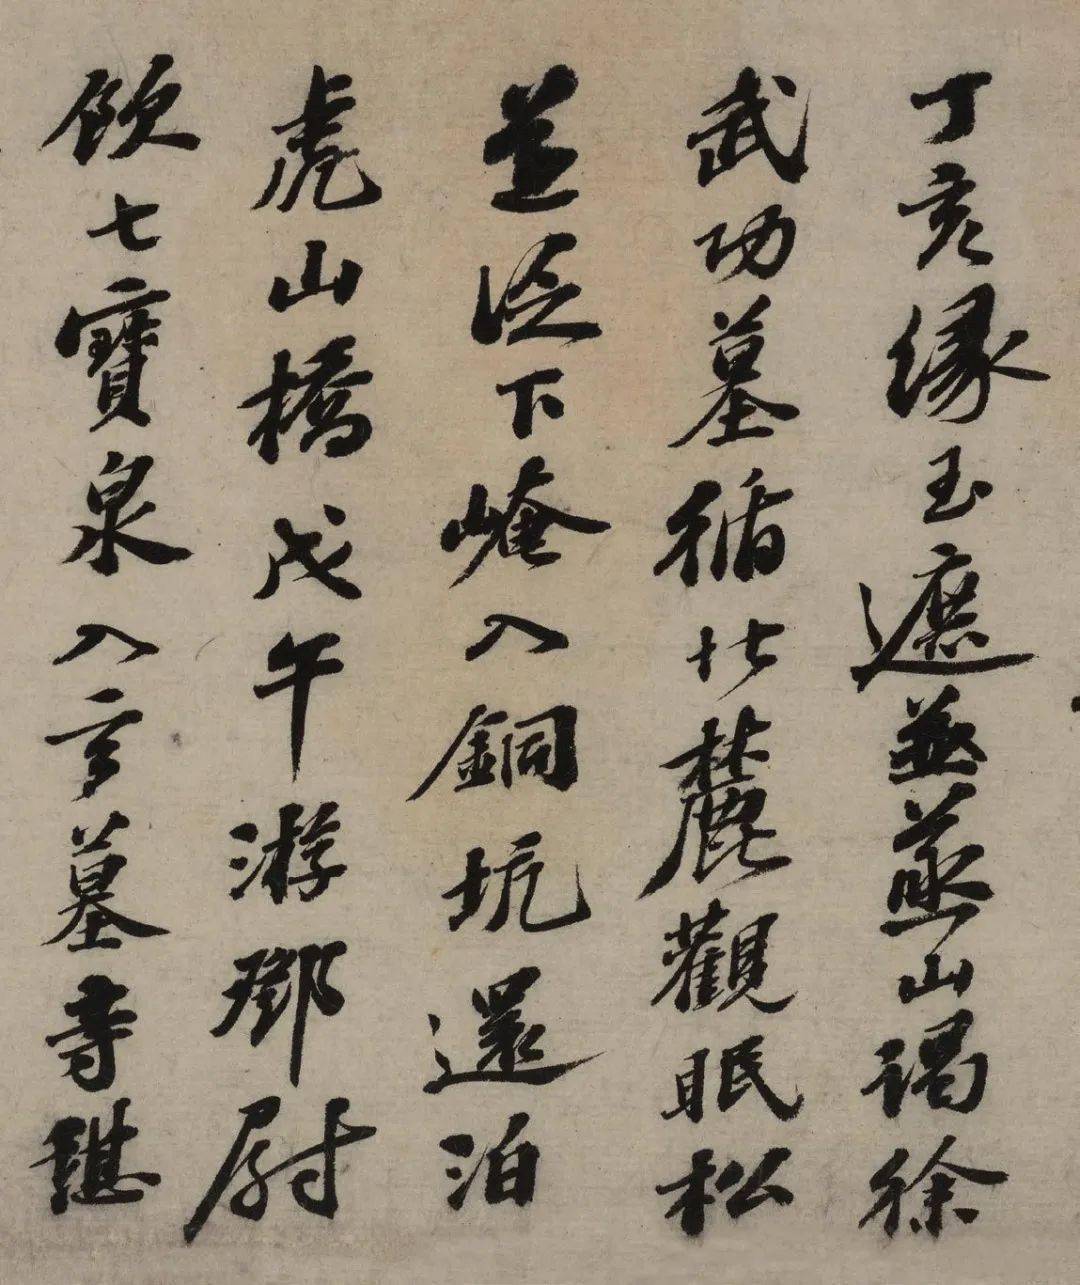 丁亥緣玉遮並蒸山謁徐
武功墓循北麓觀眠松
並泛下崦入銅坑還泊
虎山橋戊午游鄧尉
飲七寶泉入玄墓寺